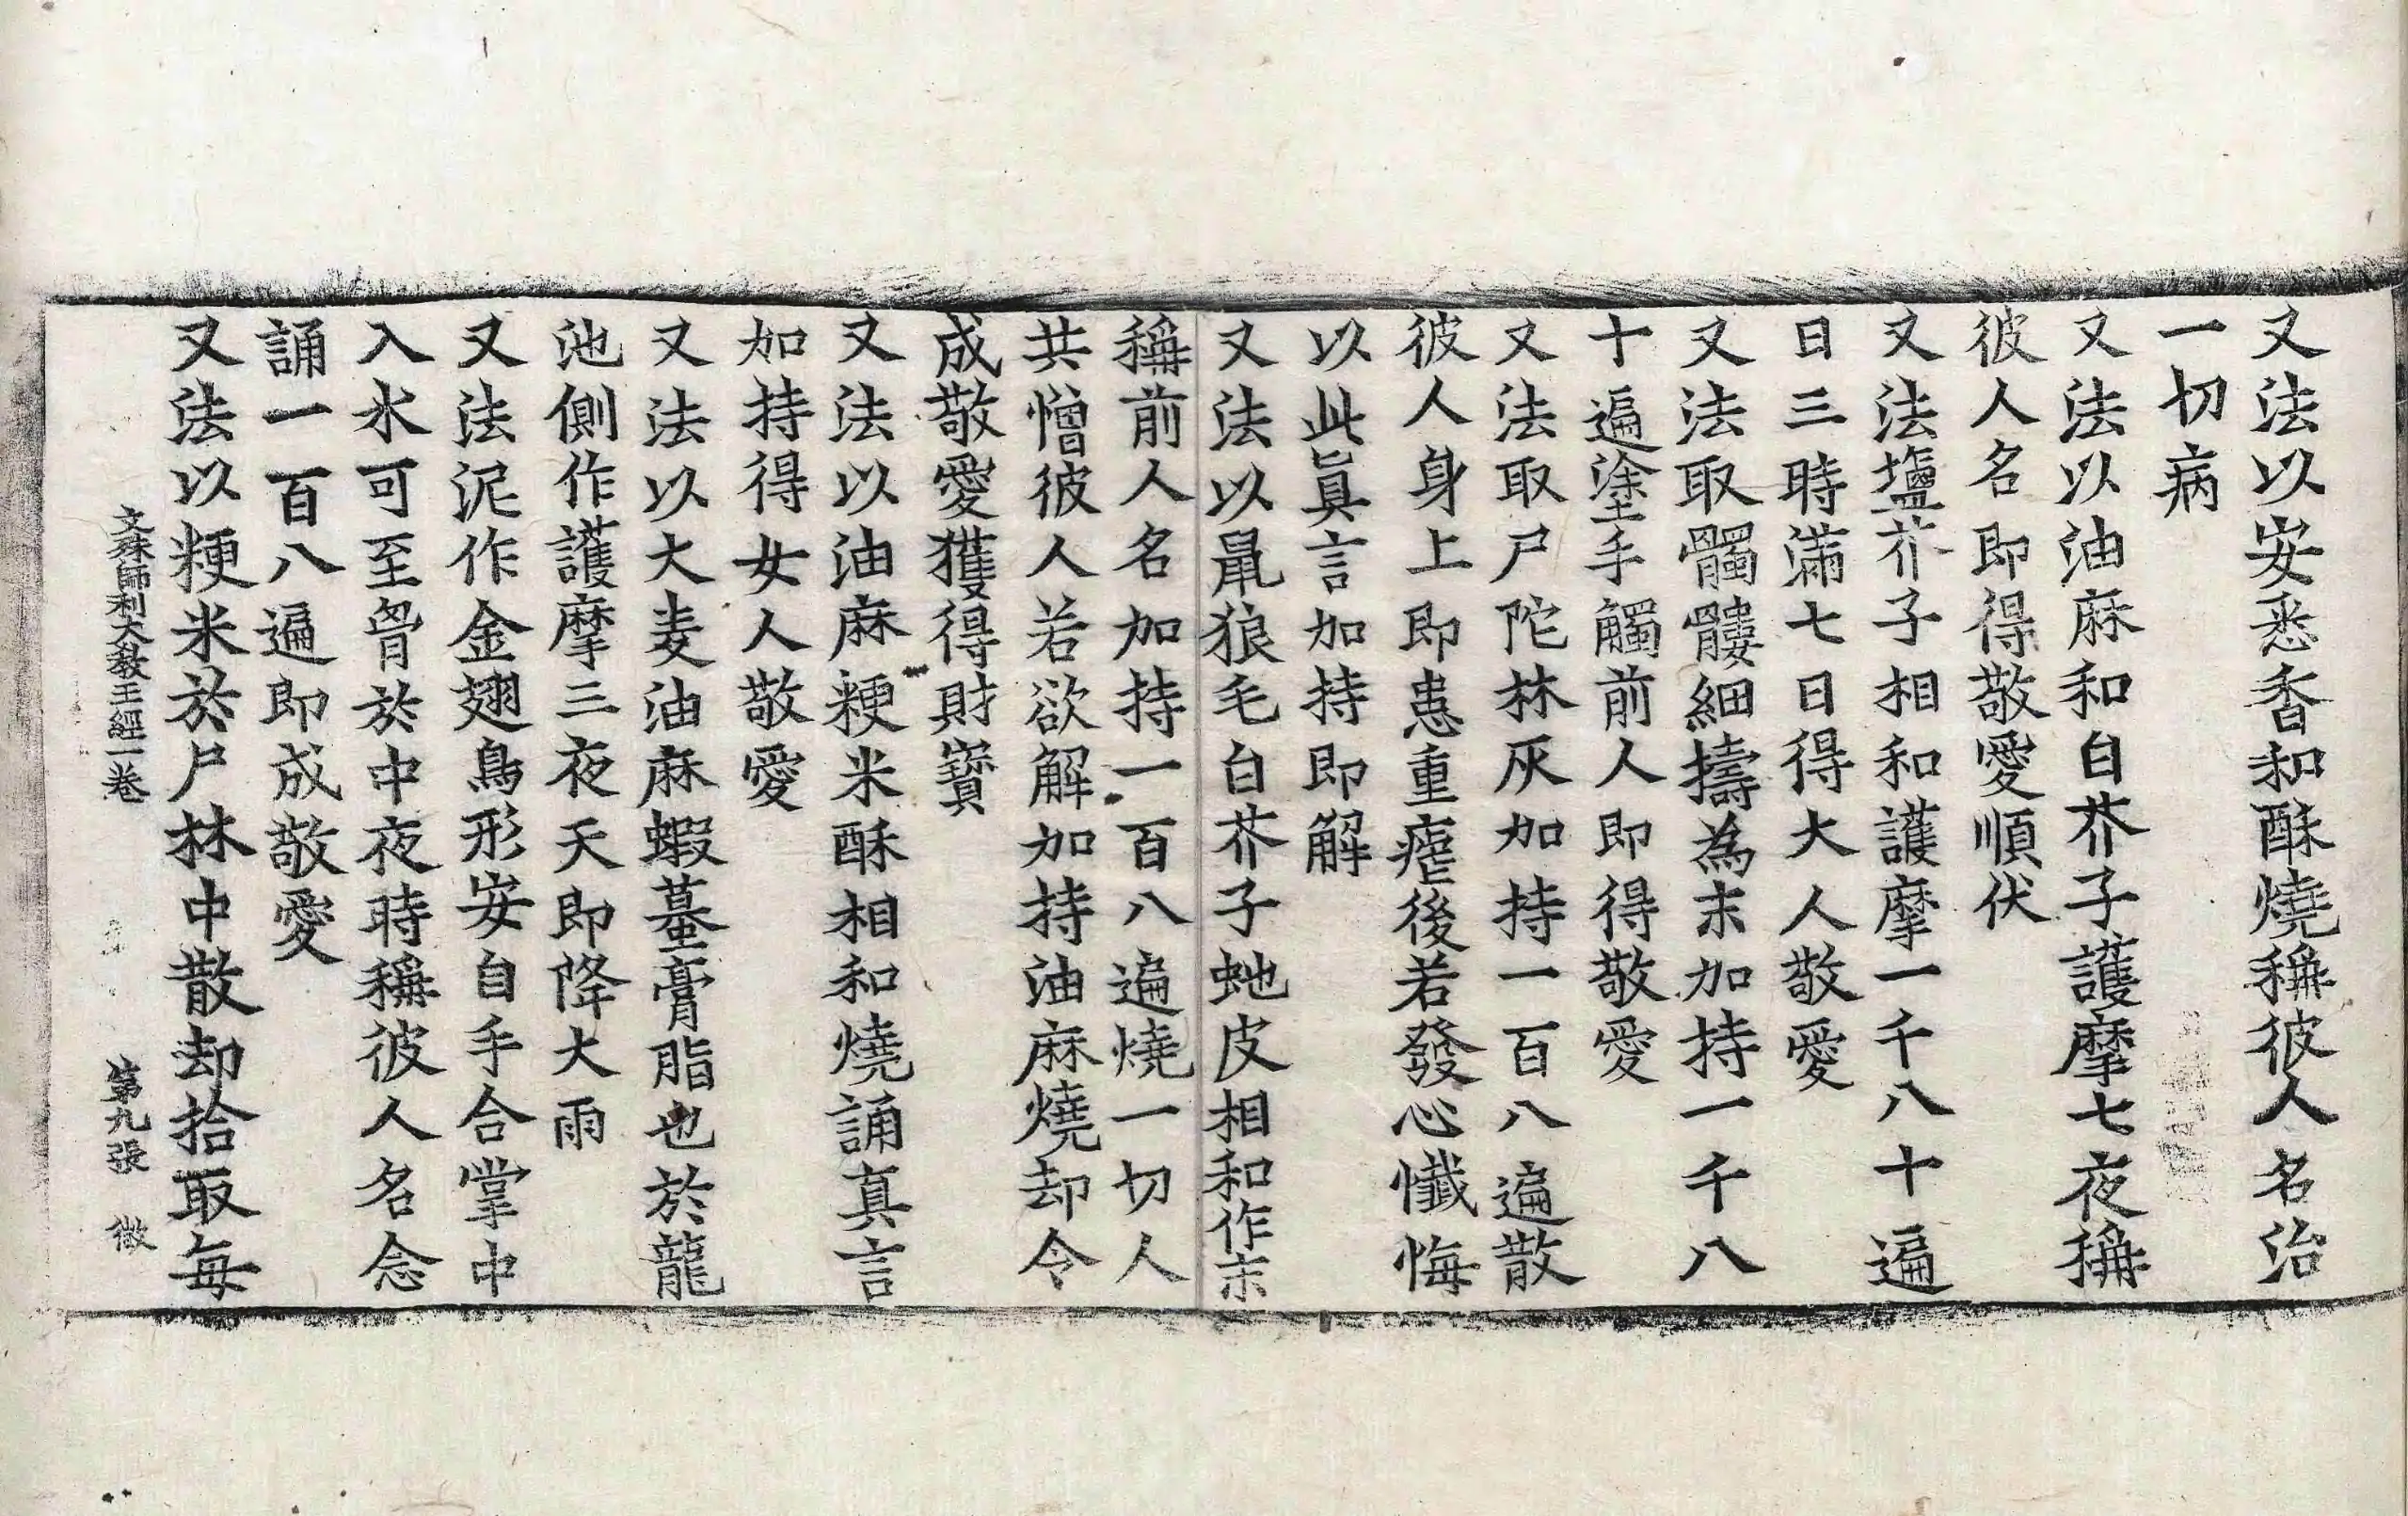 又法以安悉香和酥燒稱彼人名治
一切病
又法以油麻和白芥子護摩七夜稱
彼人名即得敬愛順伏
又法塩芥子相和護摩一千八十遍
日三時滿七日得大人敬愛
又法取髑髏細擣為末加持一千八
十遍塗手觸前人即得敬愛
又法取尸陀林灰加持一百八遍散
彼人身上即患重瘧後若發心懺悔
以此眞言加持即解
又法以鼠狼毛白芥子虵皮相和作末
稱前人名加持一百八遍燒一切人
共憎彼人若欲解加持油麻燒却令
成敬愛獲得財寶
又法以油麻粳米酥相和燒誦真言
如持得女人敬愛
又法以大麦油麻蝦蟇膏脂也於龍
池側作護摩三夜天即降大雨
又法泥作金翅鳥形安自手合掌中
入水可至胷於中夜時稱彼人名念
誦一百八遍即成敬愛
又法以粳米於尸林中散却拾取每
文殊師利大教王經一卷 第九張 微